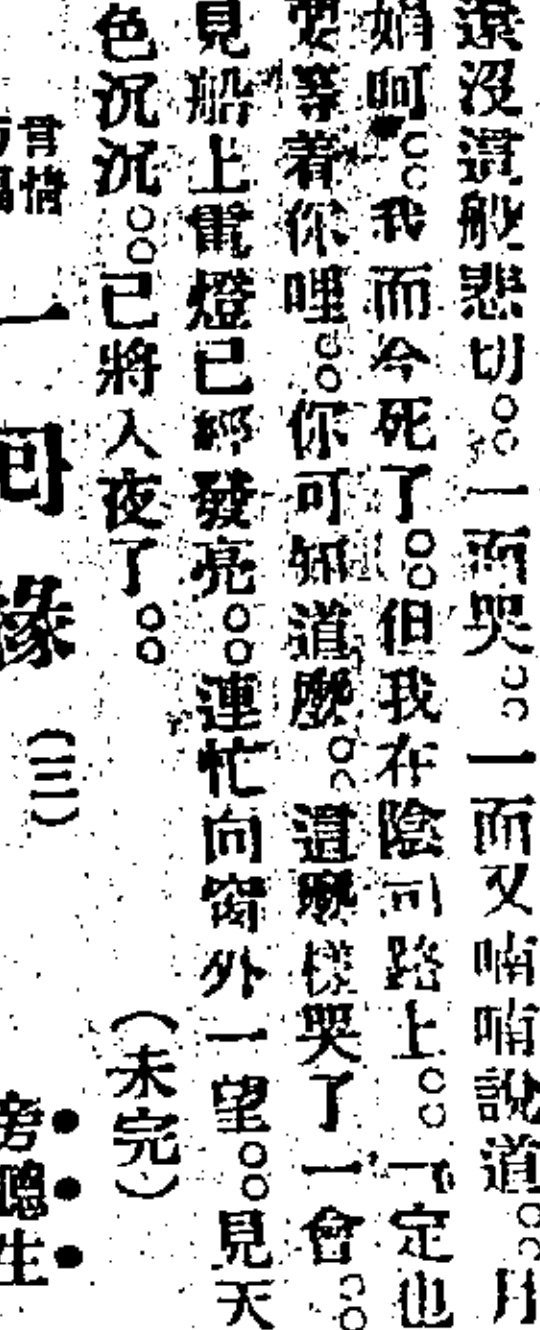 還沒這般悲切。一面哭。一面又喃喃說道。月
娟呵。我而今死了。但我在陰司路上。一定也
要等着你哩。你可知道麼。這麼樣哭了一會。
見船上電燈已經發亮。連忙向窗外一望。見天
色沉沉。已將入夜了。(未完)
言情
一 緣 (三) 旁聽生